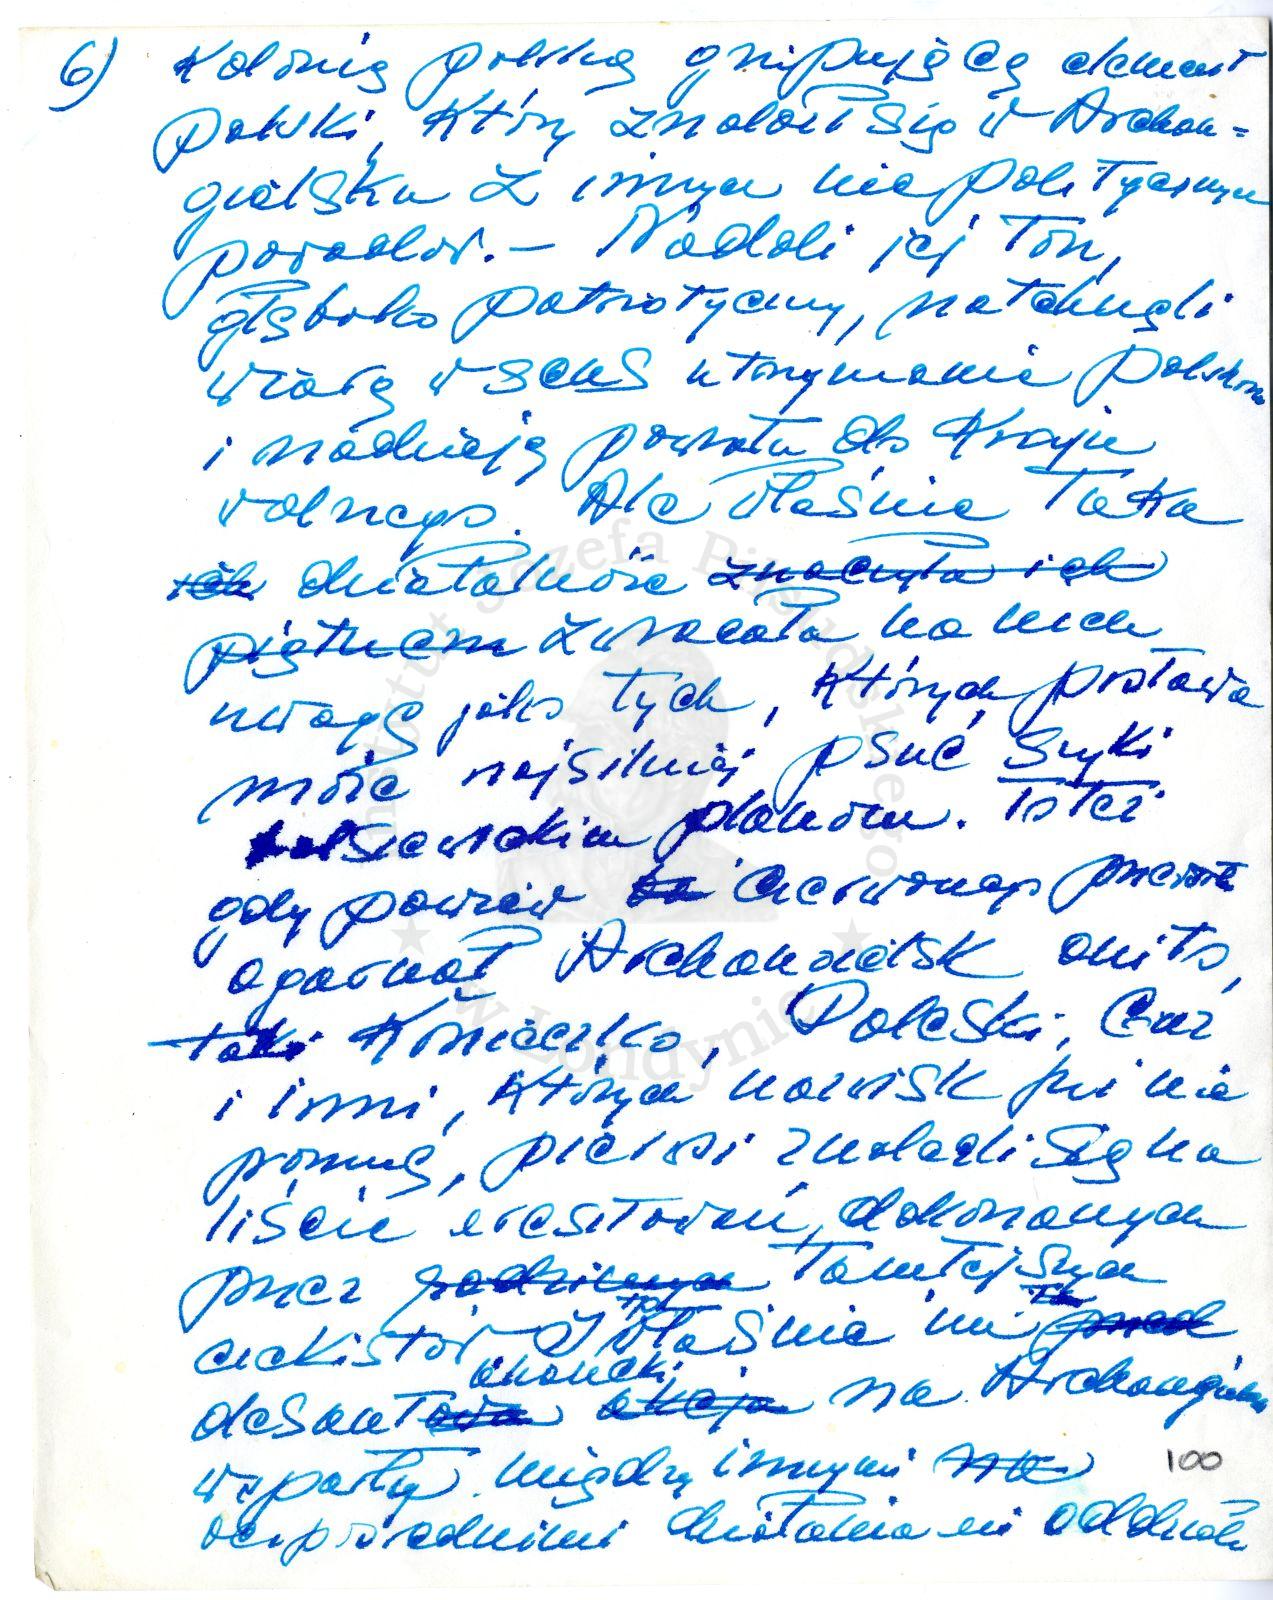 6) Kolonią polską grupującą element
polski, który znalazł się w Archan-
gielsku z innych nie politycznych
powodów. – Nadali jej ton,
głęboko patriotyczny, natchnęli
wiarą w sens utrzymania polskości
i nadzieją powrotu do Kraju
wolnego. Ale właśnie taka
ich działalność znaczyła ich
piętnem zwracała na nich
uwagę jako tych, których postawa
może najsilniej psuć szyki
bolszewickim planom. Toteż
gdy powiew czerwonego przewrotu
ogarnął Archangielsk oni to,
taki Konieczko, Poleski,
i inni, których nazwisk już nie
pomnę, pierwsi znaleźli się na
liście aresztowań, dokonanych
przez rodzimych tamtejszych
czekistów. I właśnie im
desantowa akcja na Archangielsk
aliancki
wsparty między innymi na
bezpośrednimi działaniami oddziału
100
Instytut Józefa Piłsudskiego
w Londynie